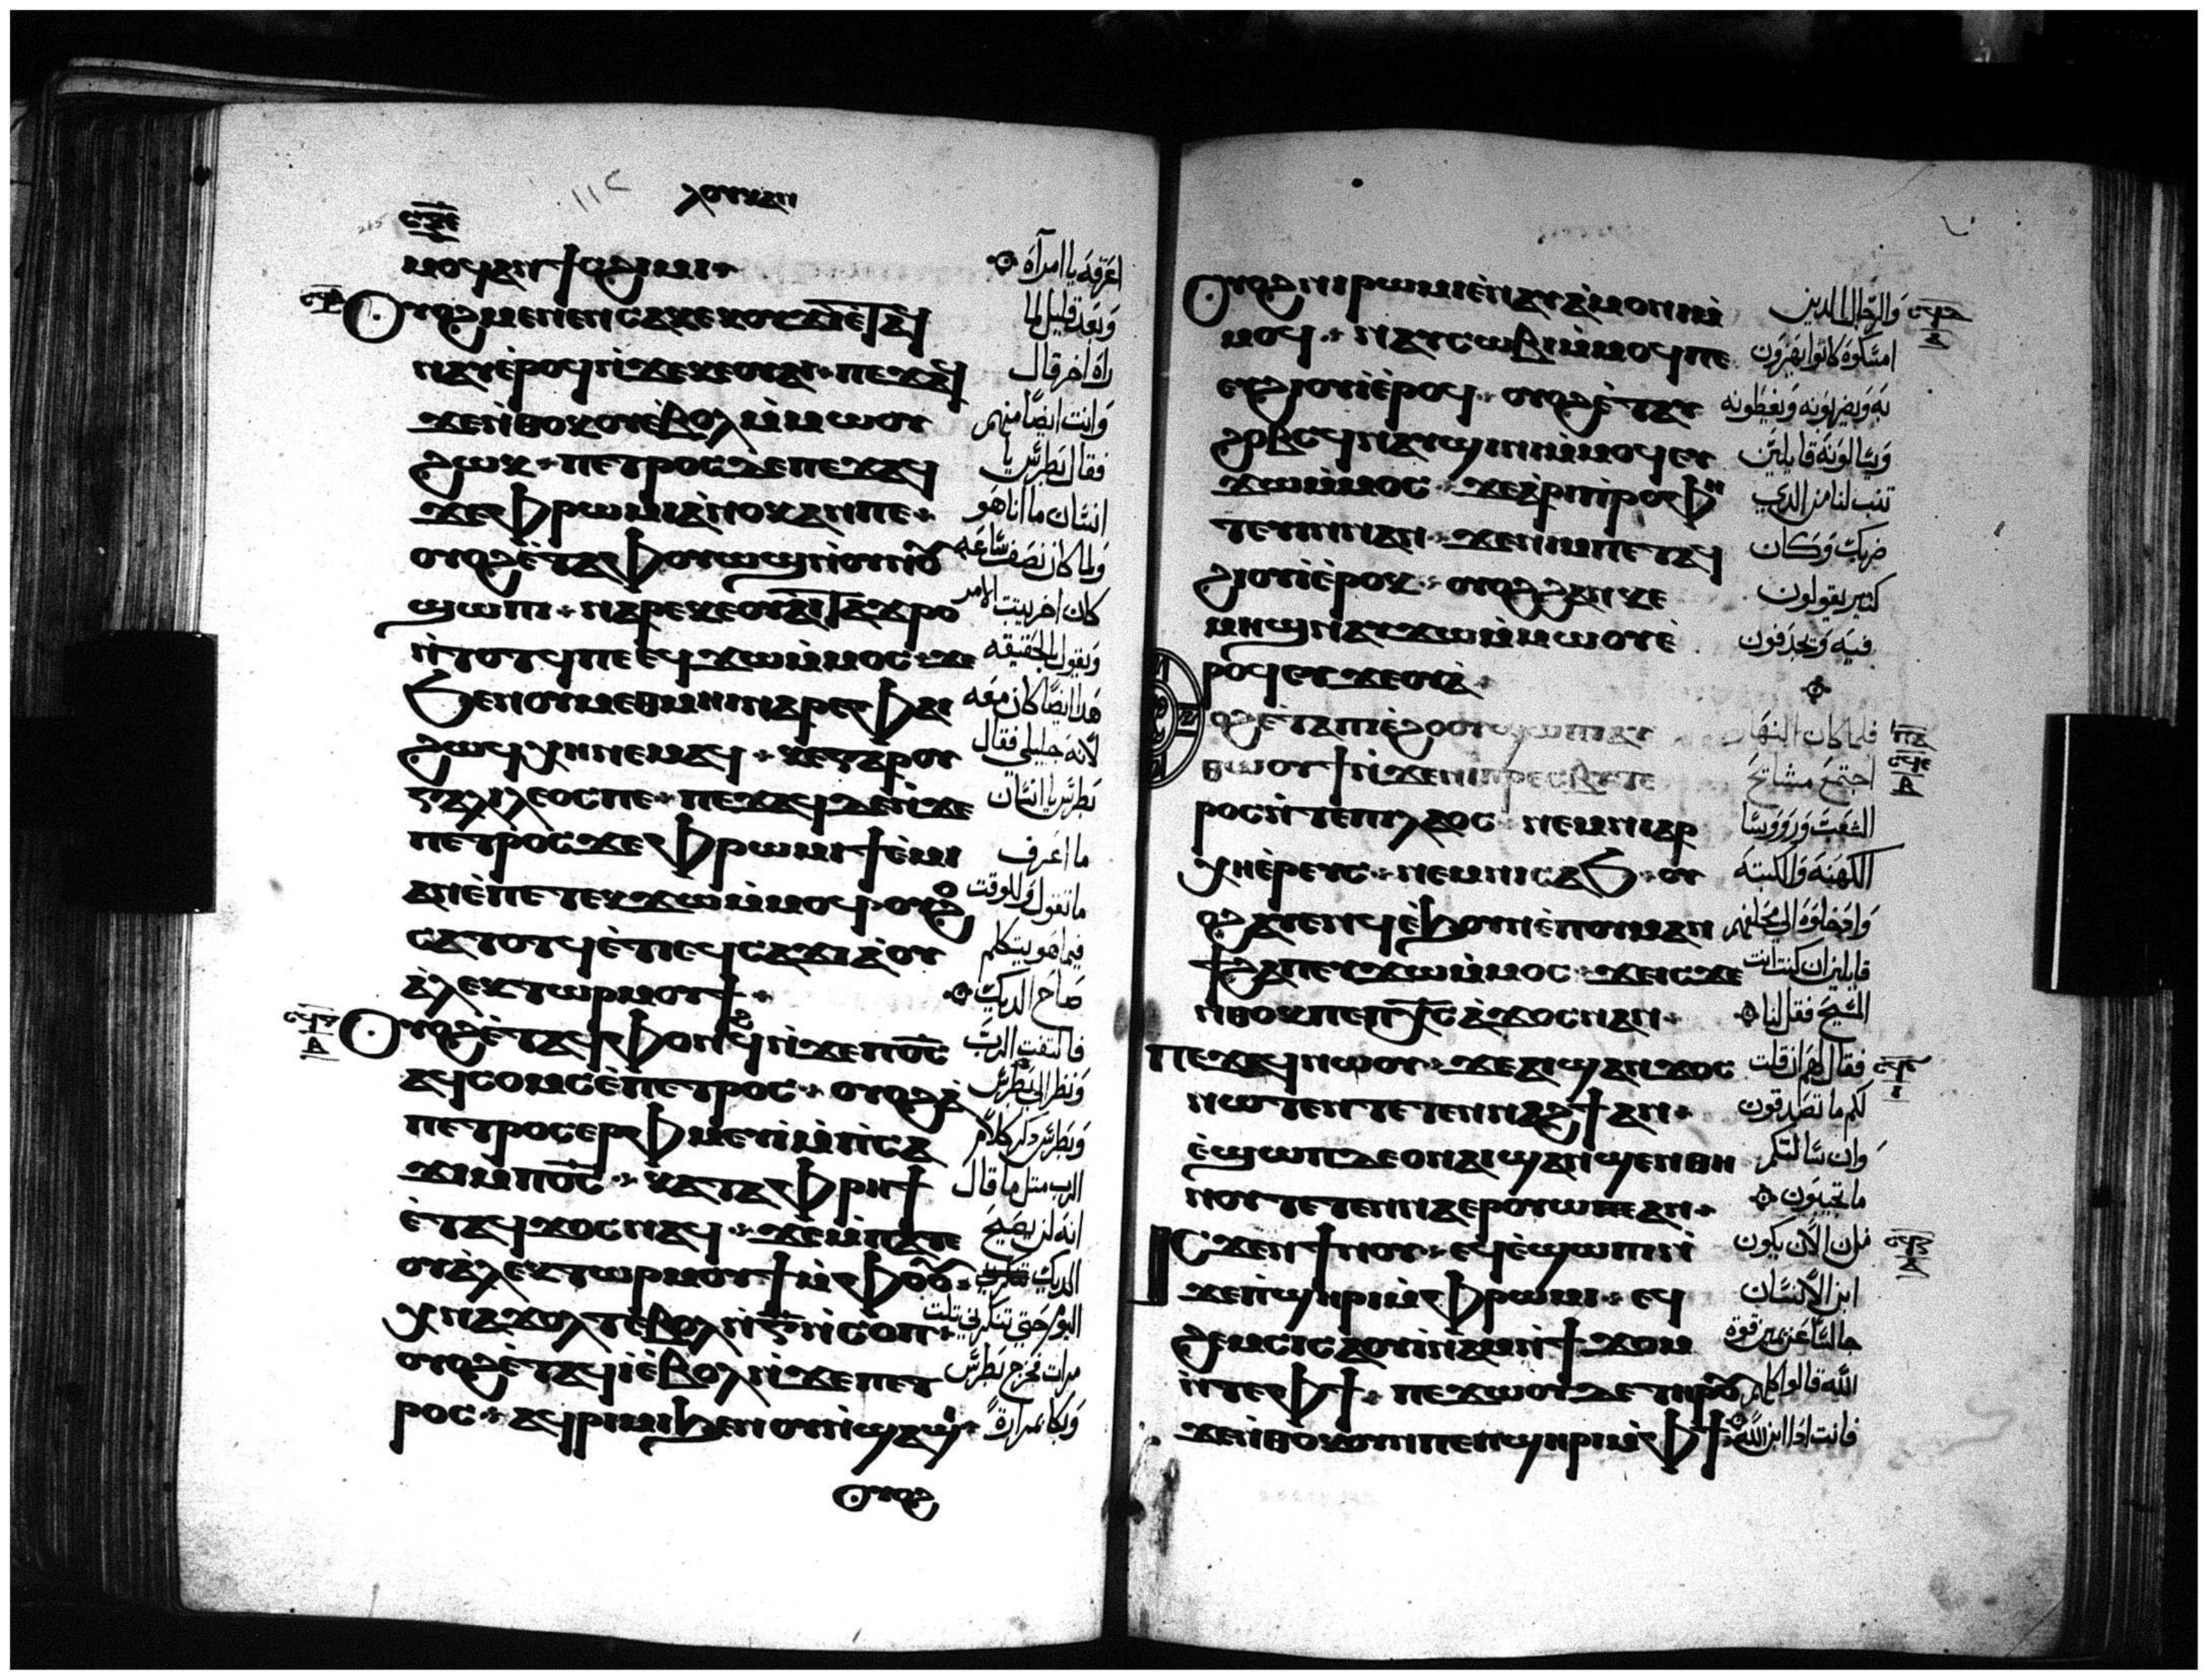 ⲗⲟⲩⲕⲁⲛ
ⲙⲟϥ ⲁⲛ ϯⲥϩⲓⲙⲓ
ⲟⲩⲟϩ ⲙⲉⲛⲉⲛⲥⲁ ⲕⲉⲕⲟⲩϫⲓ ⲉⲧⲁϥ
ⲛⲁⲩ ⲉⲣⲟϥ ⲛϫⲉ ⲕⲉⲟⲩⲁⲓ ⲡⲉϫⲁϥ
ϫⲉ ⲛⲑⲟⲕ ⲟⲩⲉⲃⲟⲗ ⲙⲙⲱⲟⲩ
ϩⲱⲕ ⲡⲉⲧⲣⲟⲥ ⲇⲉ ⲡⲉϫⲁϥ
ϫⲉ ⲫⲣⲱⲙⲓ ⲁⲛⲟⲕ ⲁⲛ ⲡⲉ
ⲟⲩⲟϩ ⲉⲧⲁ ⲫⲟⲩⲱϣ ⲛⲟⲩⲛⲟⲩ
ϣⲱⲡⲓ ⲛⲁⲣⲉ ⲕⲉⲟⲩⲁⲓ ⲧⲁϫⲣⲟ
ⲛⲧⲟⲧϥ ⲡⲉ ⲉϥϫⲱ ⲙⲙⲟⲥ ϫⲉ
ϧⲉⲛ ⲟⲩⲙⲉⲑⲙⲏⲓ ⲛⲁⲣⲉ ⲫⲁⲓ
ϩⲱϥ ⲭⲏ ⲛⲉⲙⲁϥ ⲕⲉ ⲅⲁⲣ ⲟⲩ
ⲅⲁⲗⲓⲗⲉⲟⲥ ⲡⲉ ⲡⲉϫⲁϥ ⲇⲉ ⲛϫⲉ
ⲡⲉⲧⲣⲟⲥ ϫⲉ ⲫⲣⲱⲙⲓ ϯⲉⲙⲓ
ⲁⲛ ⲉⲡⲉⲧⲉⲕϫⲱ ⲙⲙⲟϥ ⲟⲩⲟϩ
ⲥⲁⲧⲟⲧϥ ⲉⲧⲓ ⲉϥⲥⲁϫⲓ ⲁ ⲟⲩ
ⲁⲗⲉⲕⲧⲱⲣ ⲙⲟⲩϯ
ⲟⲩⲟϩ ⲉⲧⲁϥⲫⲟⲛϩϥ ⲛϫⲉ ⲡⲟⲥ
ⲁϥⲥⲟⲙⲥ ⲉⲡⲉⲧⲣⲟⲥ ⲟⲩⲟϩ ⲁ
ⲡⲉⲧⲣⲟⲥ ⲉⲣⲫⲙⲉⲩⲓ ⲙⲡⲥⲁ
ϫⲓ ⲙⲡⲟⲥ ⲕⲁⲧⲁ ⲫⲣⲏϯ
ⲉⲧⲁϥϫⲟⲥ ⲛⲁϥ ϫⲉ ⲙⲡⲁⲧⲉ
ⲟⲩⲁⲗⲉⲕⲧⲱⲣ ⲙⲟⲩϯ ⲙⲫⲟⲟⲩ
ⲭⲛⲁϫⲟⲗⲧ ⲉⲃⲟⲗ ⲛⲅ ⲛⲥⲟⲡ
ⲟⲩⲟϩ ⲉⲧⲁϥⲓ ⲉⲃⲟⲗ ⲛϫⲉ ⲡⲉⲧ
ⲣⲟⲥ ⲁϥⲣⲓⲙⲓ ϧⲉⲛ ⲟⲩⲛⲓϣⲁϣⲓ
ⲟⲩⲟϩ
اعرفه يا امرأة
وبعد قليل لما
راه اخر قال
وانت ايضا منهم
فقال بطرس يا
انسان ما انا هو
ولما كان نصف ساعه
كان اخر يتبت الامر
ويقول بالحقيقه
هدا ايضا كان معه
لانه جليلي فقال
بطرس يا انسان
ما اعرف
ما تقول وللوقت
فيما هو يتكلم
صاح الديك
فالتفت الرب
ونظر الى بطرس
وبطرس دكر كلام
الرب متل ما قال
انه لن يصيح
الديك
اليوم حتى تنكرني تلت
مرات فخرج بطرس
وبكا بمرارة
ⲟⲩⲟϩ ⲛⲓⲣⲱⲙⲓ ⲉⲛⲁⲩⲁⲙⲟⲛⲓ ⲙ
ⲙⲟϥ ⲛⲁⲩⲥⲱⲃⲓ ⲙⲙⲟϥ ⲡⲉ
ⲉⲩϩⲓⲟⲩⲓ ⲉⲣⲟϥ ⲟⲩⲟϩ ⲉⲧⲁⲩ
ϩⲟⲃⲥϥ ⲛⲁⲩϣⲓⲛⲓ ⲙⲙⲟϥ ⲉⲩ
ϫⲱ ⲙⲙⲟⲥ ϫⲉ ⲁⲣⲓⲡⲣⲟⲫⲏ
ⲧⲉⲩⲓⲛ ⲛⲁⲛ ϫⲉ ⲛⲓⲙ ⲡⲉⲧⲁϥ
ϩⲓⲟⲩⲓ ⲉⲣⲟⲕ ⲟⲩⲟϩ ϩⲁⲛⲕⲉ
ⲙⲏϣ ⲛⲁⲩϫⲱ ⲙⲙⲱⲟⲩ ⲉ
ⲣⲟϥ ⲉⲩϫⲉⲟⲩⲁ
ⲟϩ ⲉⲧⲁ ⲡⲓⲉϩⲟⲟⲩ ϣⲱⲡⲓ ⲁⲩ
ⲑⲱⲟⲩϯ ⲛϫⲉ ⲛⲓⲡⲣⲉⲥⲃⲩⲧⲉ
ⲣⲟⲥ ⲛⲧⲉ ⲡⲓⲗⲁⲟⲥ ⲛⲉⲙ ⲛⲓⲁⲣ
ⲭⲏⲉⲣⲉⲩⲥ ⲛⲉⲙ ⲛⲓⲥⲁϧ ⲟⲩ
ⲟϩ ⲁⲩⲉⲛϥ ⲉϧⲟⲩⲛ ⲉⲡⲟⲩⲙⲁⲛ
ϯϩⲁⲡ ⲉⲩϫⲱ ⲙⲙⲟⲥ ϫⲉ ⲓⲥϫⲉ
ⲛⲑⲟⲕ ⲡⲉ ⲡⲭⲥ ⲁϫⲟⲥ ⲛⲁⲛ
ⲡⲉϫⲁϥ ⲛⲱⲟⲩ ϫⲉ ⲁⲓϣⲁⲛϫⲟⲥ
ⲛⲱⲧⲉⲛ ⲧⲉⲧⲉⲛⲛⲁϩϯ ⲁⲛ
ⲉϣⲱⲡ ⲇⲉ ⲟⲛ ⲁⲓϣⲁⲛϣⲉⲛ ⲑⲏ
ⲛⲟⲩ ⲧⲉⲧⲉⲛⲛⲁⲉⲣⲟⲩⲱ ⲁⲛ
ⲓⲥϫⲉⲛ ϯⲛⲟⲩ ⲉϥⲉϣⲱⲡⲓ ⲛ
ϫⲉ ⲡϣⲏⲣⲓ ⲙⲫⲣⲱⲙⲓ ⲉϥ
ϩⲉⲙⲥⲓ ⲥⲁⲟⲩⲓⲛⲁⲙ ⲛϯϫⲟⲙ
ⲛⲧⲉ ⲫϯ ⲡⲉϫⲱⲟⲩ ⲇⲉ ⲧⲏⲣⲟⲩ
ϫⲉ ⲛⲑⲟⲕ ⲟⲩⲛ ⲡⲉ ⲡϣⲏⲣⲓ ⲙⲫϯ
والرجال الدين
امسكوه كانوا يهزون
به ويضربونه ويغطونه
ويسالونه قايلين
تنب لنا من الدي
ضربك وكان
كتير يقولون
فيه ويجدفون
فلما كان النهار
اجتمع مشايخ
الشعب وروسا
الكهنه والكتبه
وادخلوه الى محفلهم
قايلين ان كنت انت
المسيح فقل لنا
فقال لهم ان قلت
لكم ما تصدقون
وان سالتكم
ما تجيبون
من الان يكون
ابن الانسان
جالسا عن يمين قوة
الله قالوا كلهم
فانت ادا ابن الله